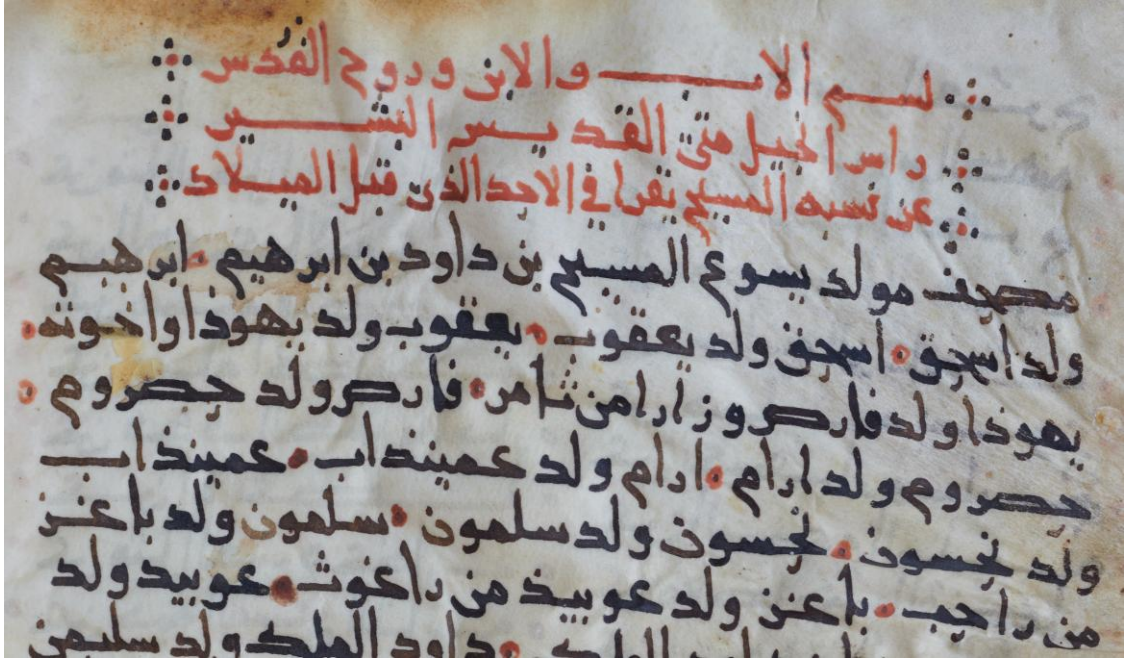 بسم الاب والابن وروح القدس
راس انجيل متى القديس البشير
عن نسبه المسيح يقرا في الاحد الذي قبل الميلاد
مصحف مولد يسوع المسيح بن داود بن ابرهيم ابرهيم
ولد اسحق اسحق ولد يعقوب يعقوب ولد يهوذا واخوته
يهوذا ولد فارص وزارا من ثامر فارص ولد حصروم
حصروم ولد ارام ارام ولد عمينذاب عمينذاب
ولد نحسون نحسون ولد سلمون سلمون ولد باعز
من راحب باعز ولد عوبيذ من راعوث عوبيد ولد
داود الملك ولد سليمن